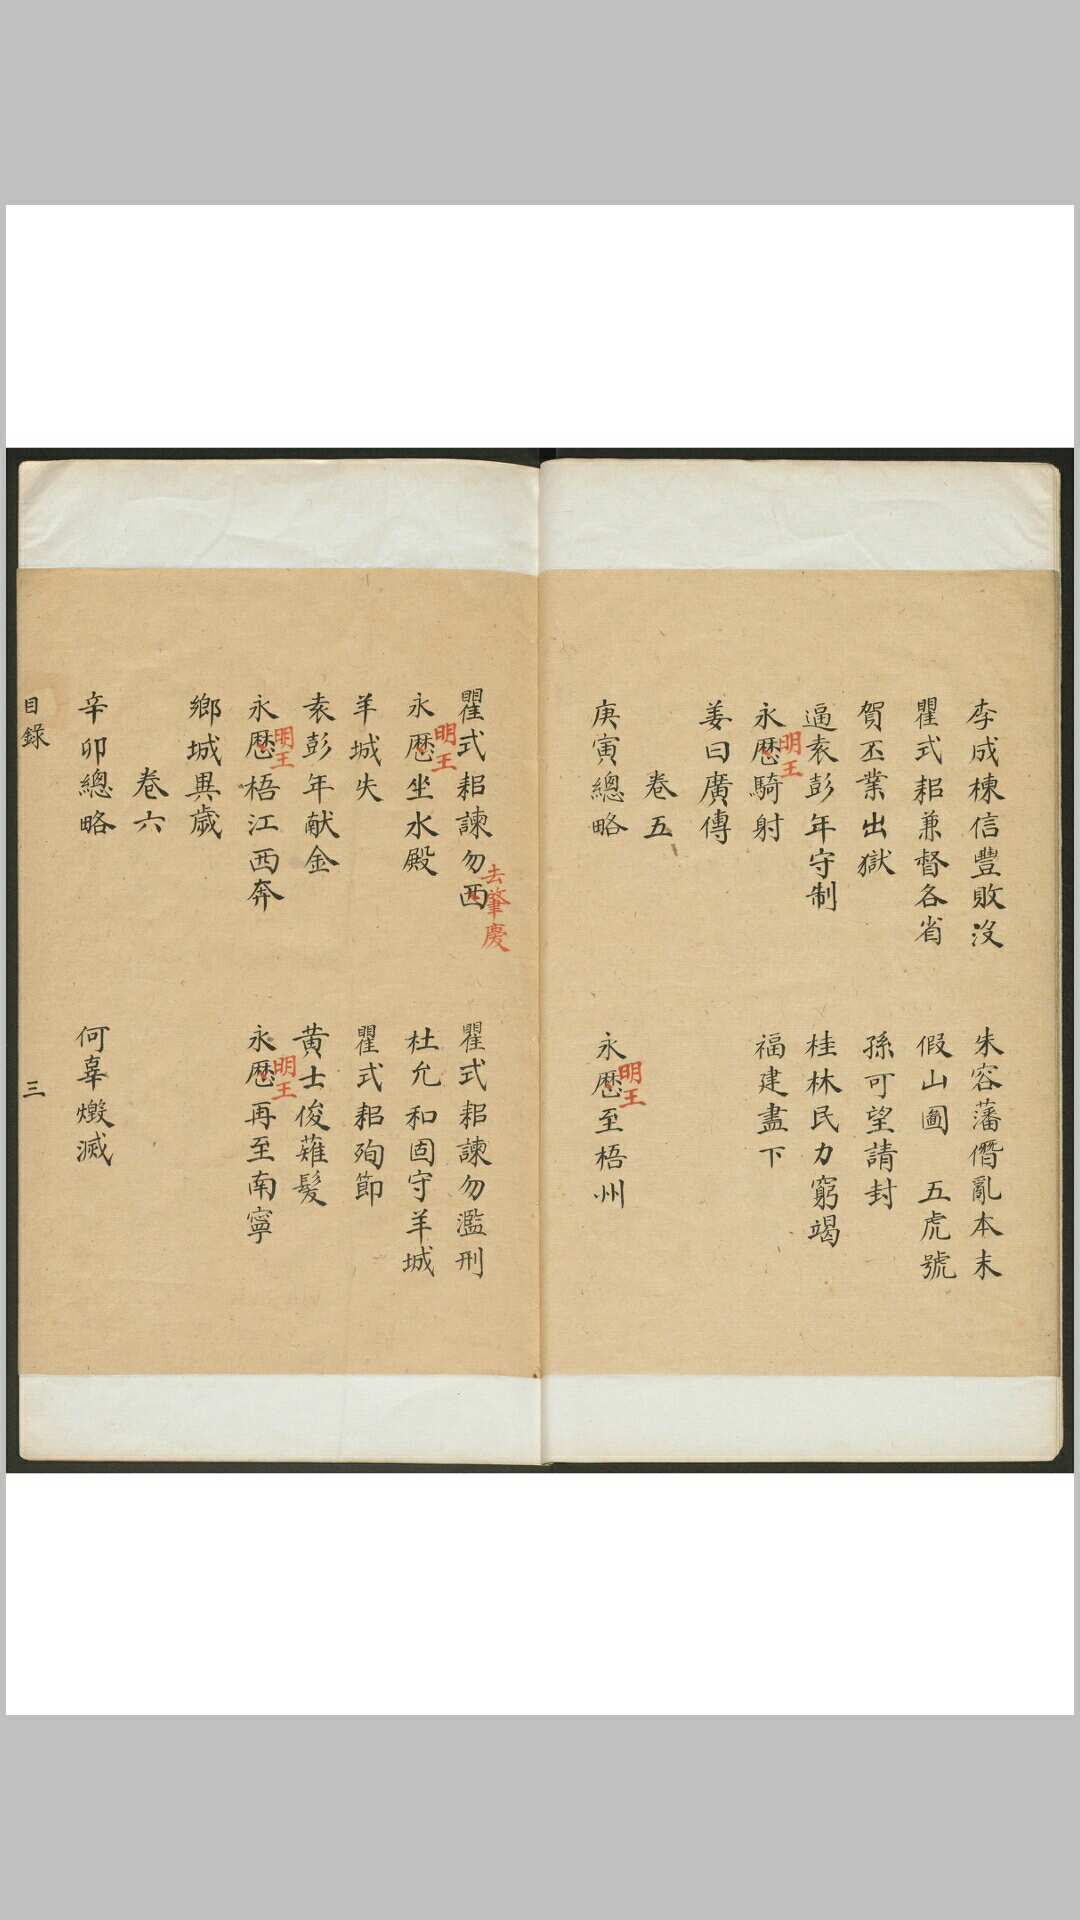 李成棟信豐敗没
朱容藩僭亂本末
瞿式耜兼督各省
假山圖 五虎號
賀丕業出獄
孫可望請封
逼袁彭年守制
桂林民力窮竭
永歷騎射
明王
福建盡下
姜曰廣傳
卷五
庚寅總略
永歷至梧州
明王
瞿式耜諫勿西
去肇慶
瞿式耜諫勿濫刑
永歷坐水殿
明王
杜允和固守羊城
羊城失
瞿式耜殉節
袁彭年献金
黄士俊薙髮
永歷梧江西奔
明王
永歷再至南寧
明王
鄉城異歲
卷六
辛卯總略
何辜燬滅
目錄
三